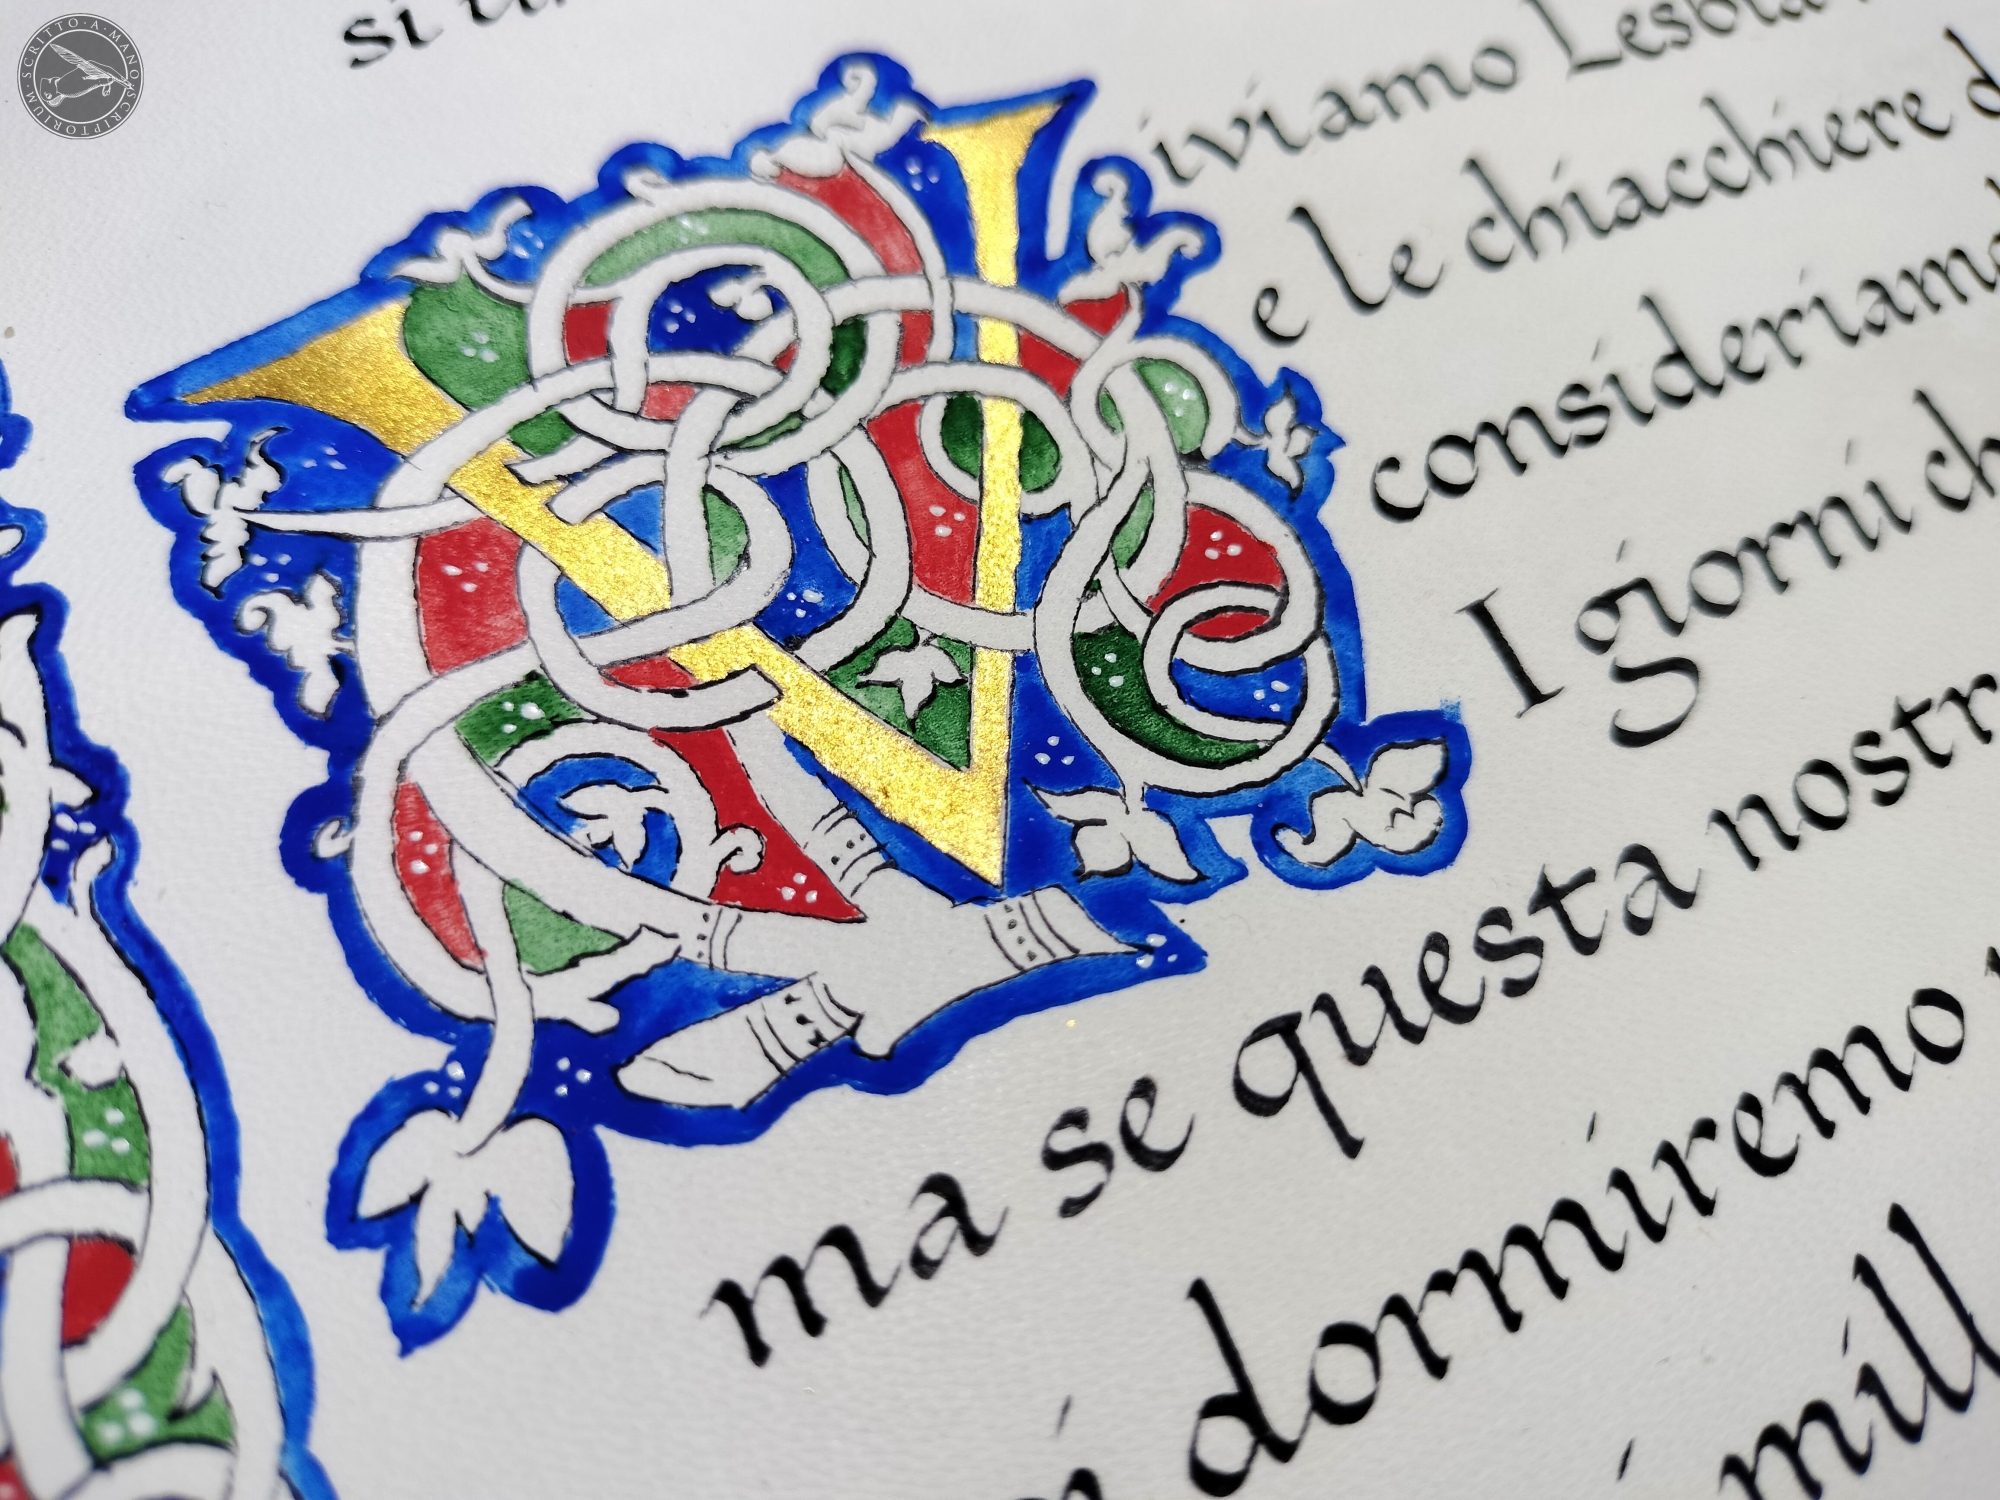 SCRITTO·A·MANO·SCRIPTORIUM
si
Viviamo Lesbia
e le chiacchiere d
consideriamo
I giorni ch
ma se questa nostr
dormiremo
mill